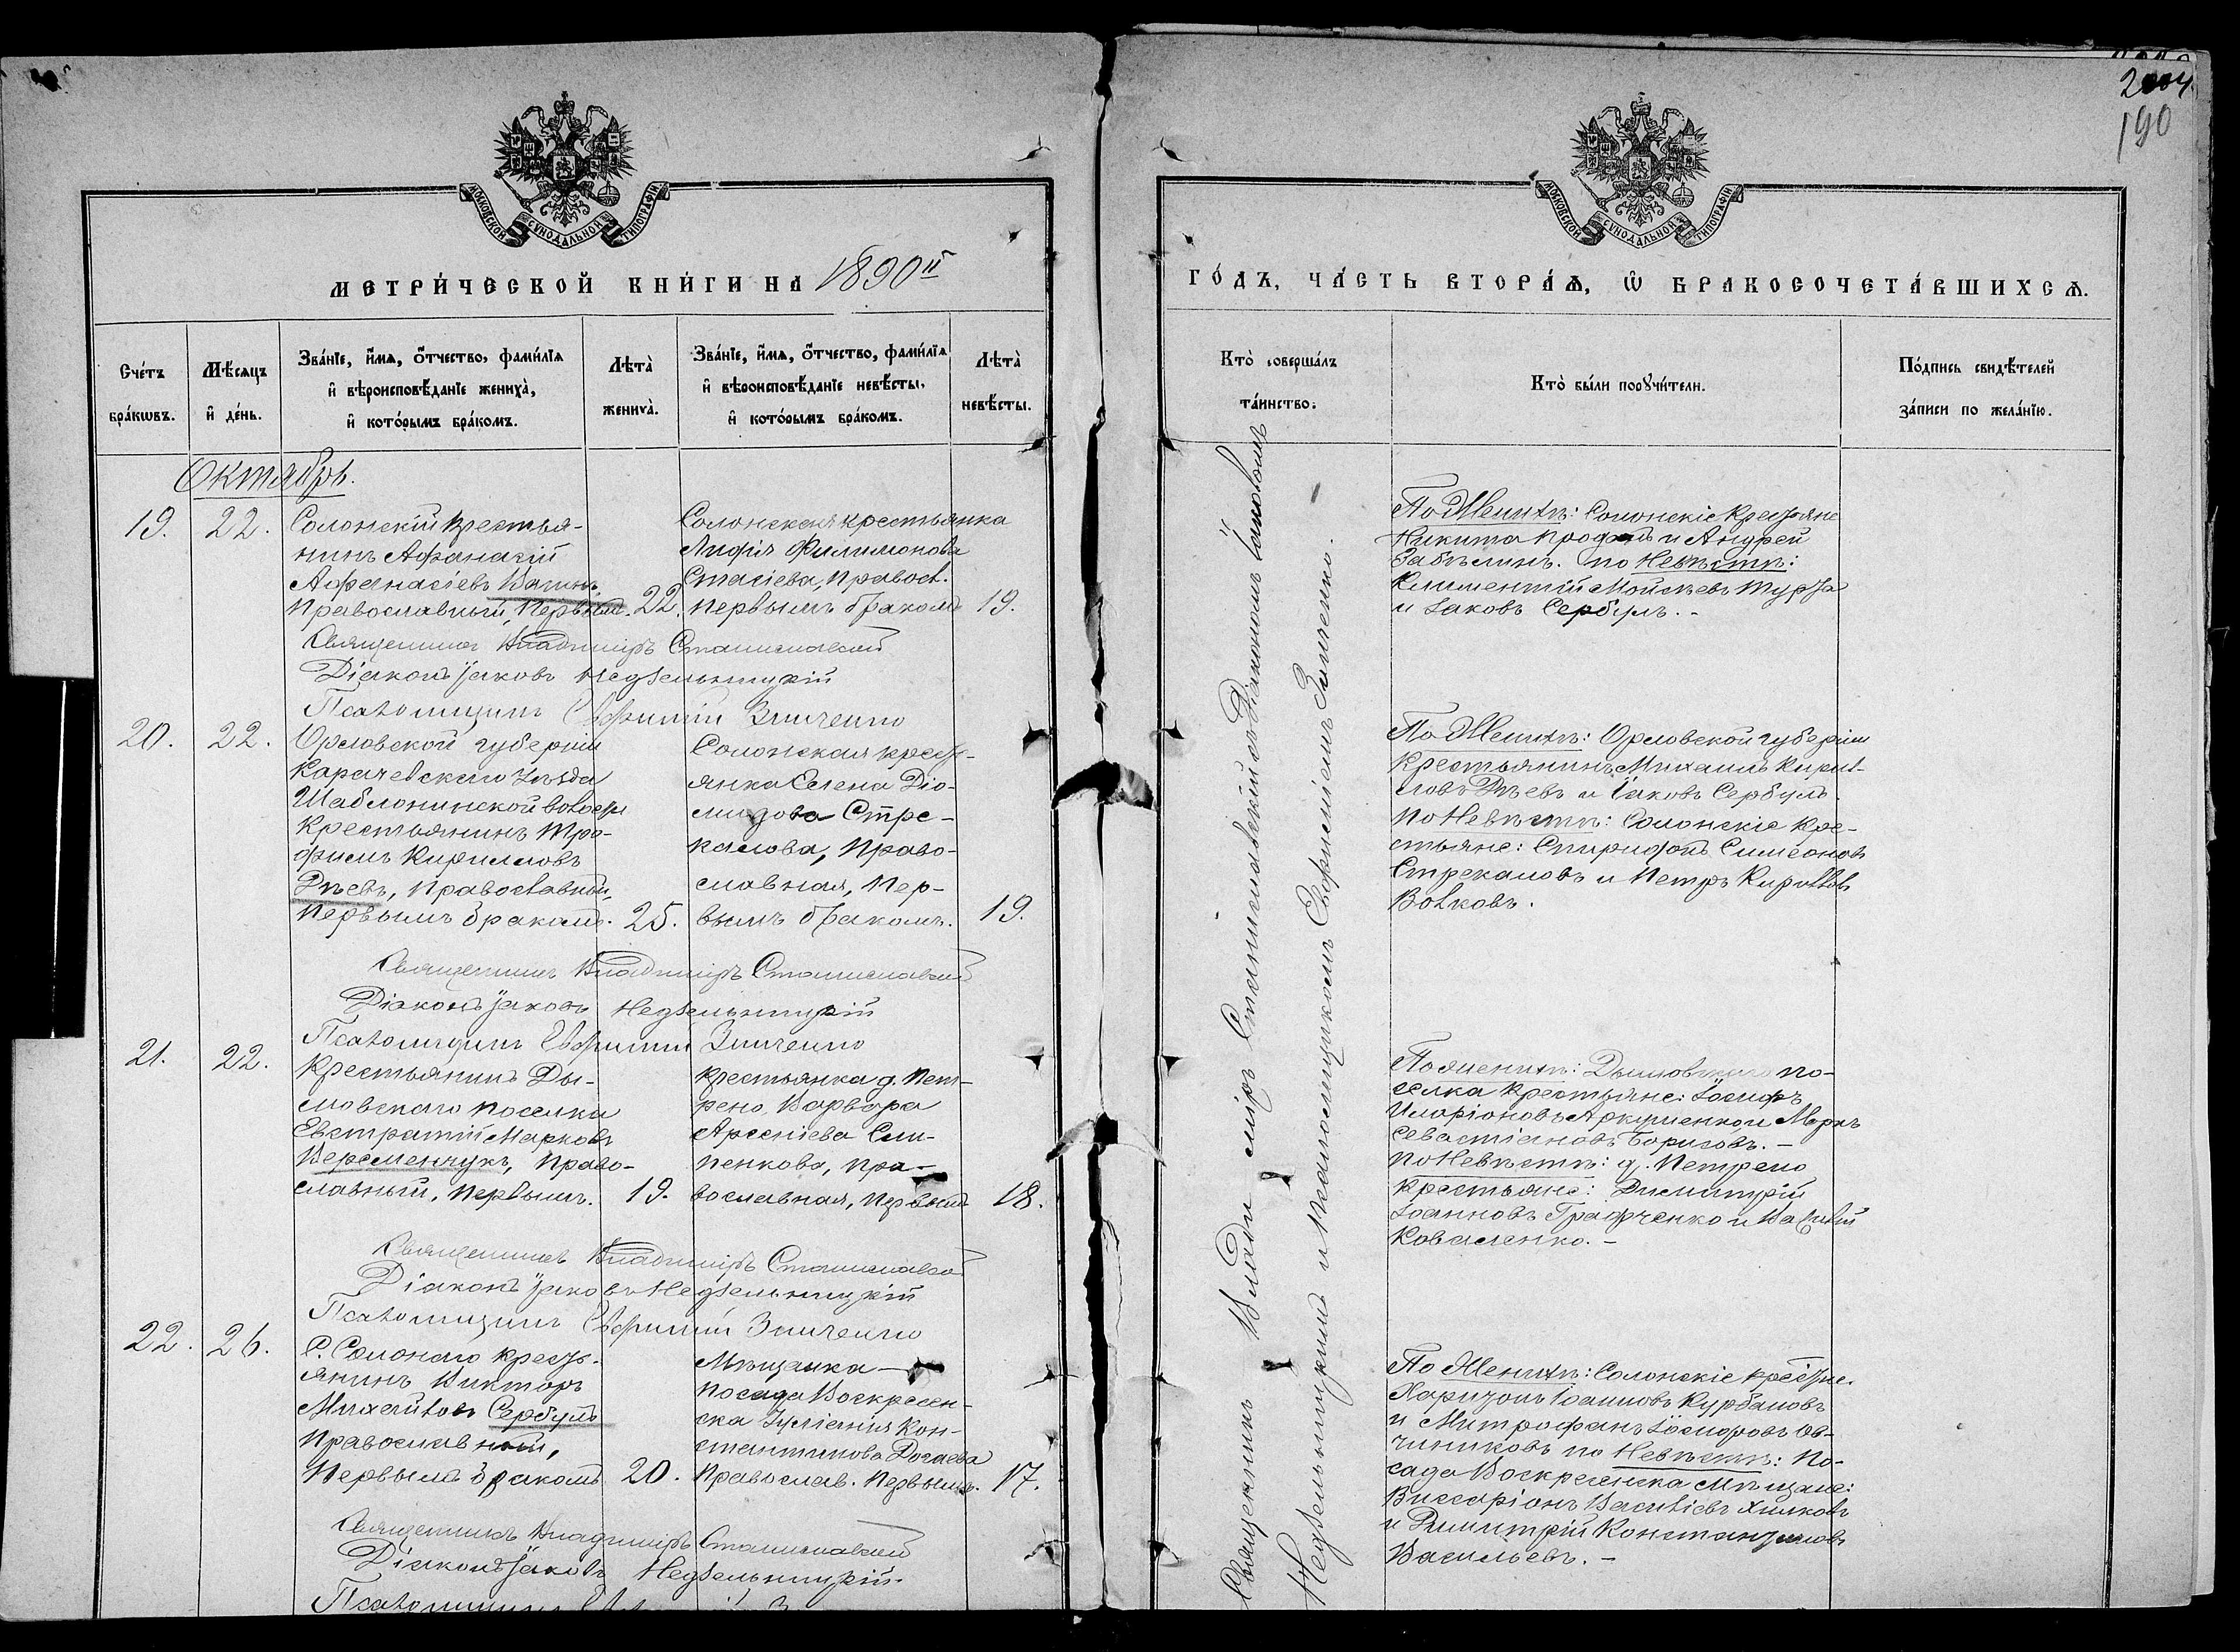 2004.
190
МОСКОВСКОЙ СѴНОДАЛЬНОЙ ТИПОГРАФІИ
МЕТРИ́ЧЕСКОЙ КНИ́ГИ НА 1890й
Сче́тъ бра́кѡвъ.
Мѣ́сяцъ и҆ де́нь.
Зва́нїе, и҆́мѧ, ѻ҆́тчество, фами́лїѧ
и҆ вѣроисповѣ́данїе жениха̀,
и҆ кото́рымъ бра́комъ.
Лѣта̀ жениха̀.
Зва́нїе, и҆́мѧ, ѻ҆́тчество, фами́лїѧ
и҆ вѣроисповѣ́данїе невѣ́сты,
и҆ кото́рымъ бра́комъ.
Лѣта̀ невѣ́сты.
Октябрь.
19. 22.
Солонскій крестья-
нинъ Афанасій
Афанасіевъ
Православный, Первым. 22.
Солонская крестьянка
Филимонова
Стасіева, Правосл.
первымъ бракомъ 19.
Священникъ Владиміръ Станиславскій
Діаконъ Іаковъ Недзельницкій
Псаломщикъ Евфимій Зинченко
20. 22.
Орловской губерніи
Карачевскаго Уѣзда
Шаблонинской волости
Крестьянинъ Тро-
фимъ Кирилловъ
Православный,
первымъ бракомъ. 25.
Солонская крест-
янка Елена Діо-
мидова Стре-
калова, Право-
славная, Пер-
вымъ бракомъ. 19.
Священникъ Владиміръ Станиславскій
Діаконъ Іаковъ Недзельницкій
Псаломщикъ Евфимій Зинченко
21. 22.
Крестьянинъ Ды-
мовскаго поселка
Евстратій Марковъ
Веременчукъ, Право-
славный, Первымъ. 19.
Крестьянка д. Пет-
рено Варвара
Арсеніева Сли-
пенкова, пра-
вославная, первым 18.
Священникъ Владиміръ Станиславскій
Діаконъ Іаковъ Недзельницкій
Псаломщикъ Евфимій Зинченко
22. 26.
С. Солонаго крест-
янинъ Викторъ
Михайловъ Сербулъ
Православный,
Первымъ бракомъ 20.
Мѣщанка
посада Воскресен-
ска Іуліанія Кон-
стантинова
Православ. Первымъ. 17.
Священникъ Владиміръ Станиславскій
Діаконъ Іаковъ Недзельницкій.
Псаломщикъ
МОСКОВСКОЙ СѴНОДАЛЬНОЙ ТИПОГРАФІИ
ГО́ДЪ, ЧА́СТЬ ВТОРА́Ѧ, Ѽ БРАКОСОЧЕТА́ВШИХСѦ.
Кто̀ соверша́лъ
та́инство.
Кто̀ бы́ли порꙋчи́тели.
По́дпись свидѣ́телей
за́писи по жела́нїю.
Священникъ Владиміръ Станиславскій съ Діакономъ Іаковомъ
Недзельницкимъ и Псаломщикомъ Евфиміемъ Зинченко.
По Женихѣ: Солонскіе Крестьяне
Никита и Андрей
Забѣлинъ. по Невѣстѣ:
Климентій Мойсѣевъ Турза
и Іаковъ Сербулъ.-
По Женихѣ: Орловской губерніи
Крестьянинъ Михаилъ Кирил-
ловъ и Іаковъ Сербулъ.
По Невѣстѣ: Солонскіе Кре-
стьяне: Спиридонъ Симеоновъ
Стрекаловъ и Петръ Кирилловъ
Волковъ.
По женихѣ: Дымовскаго по-
селка крестьяне: Іосифъ
Иларіоновъ и Маркъ
Севастіановъ Борисовъ.-
По Невѣстѣ: д. Петрено
крестьяне: Димитрій
Іоанновъ и Василій
Коваленко.-
По Женихѣ: Солонскіе крестьяне
Харитонъ Іоанновъ Курбановъ
и Митрофанъ Іосифовъ Ов-
чинниковъ по Невѣстѣ: По-
сада Воскресенска мѣщане:
Виссаріонъ Василіевъ
и Димитрій Константиновъ
Васильевъ.-